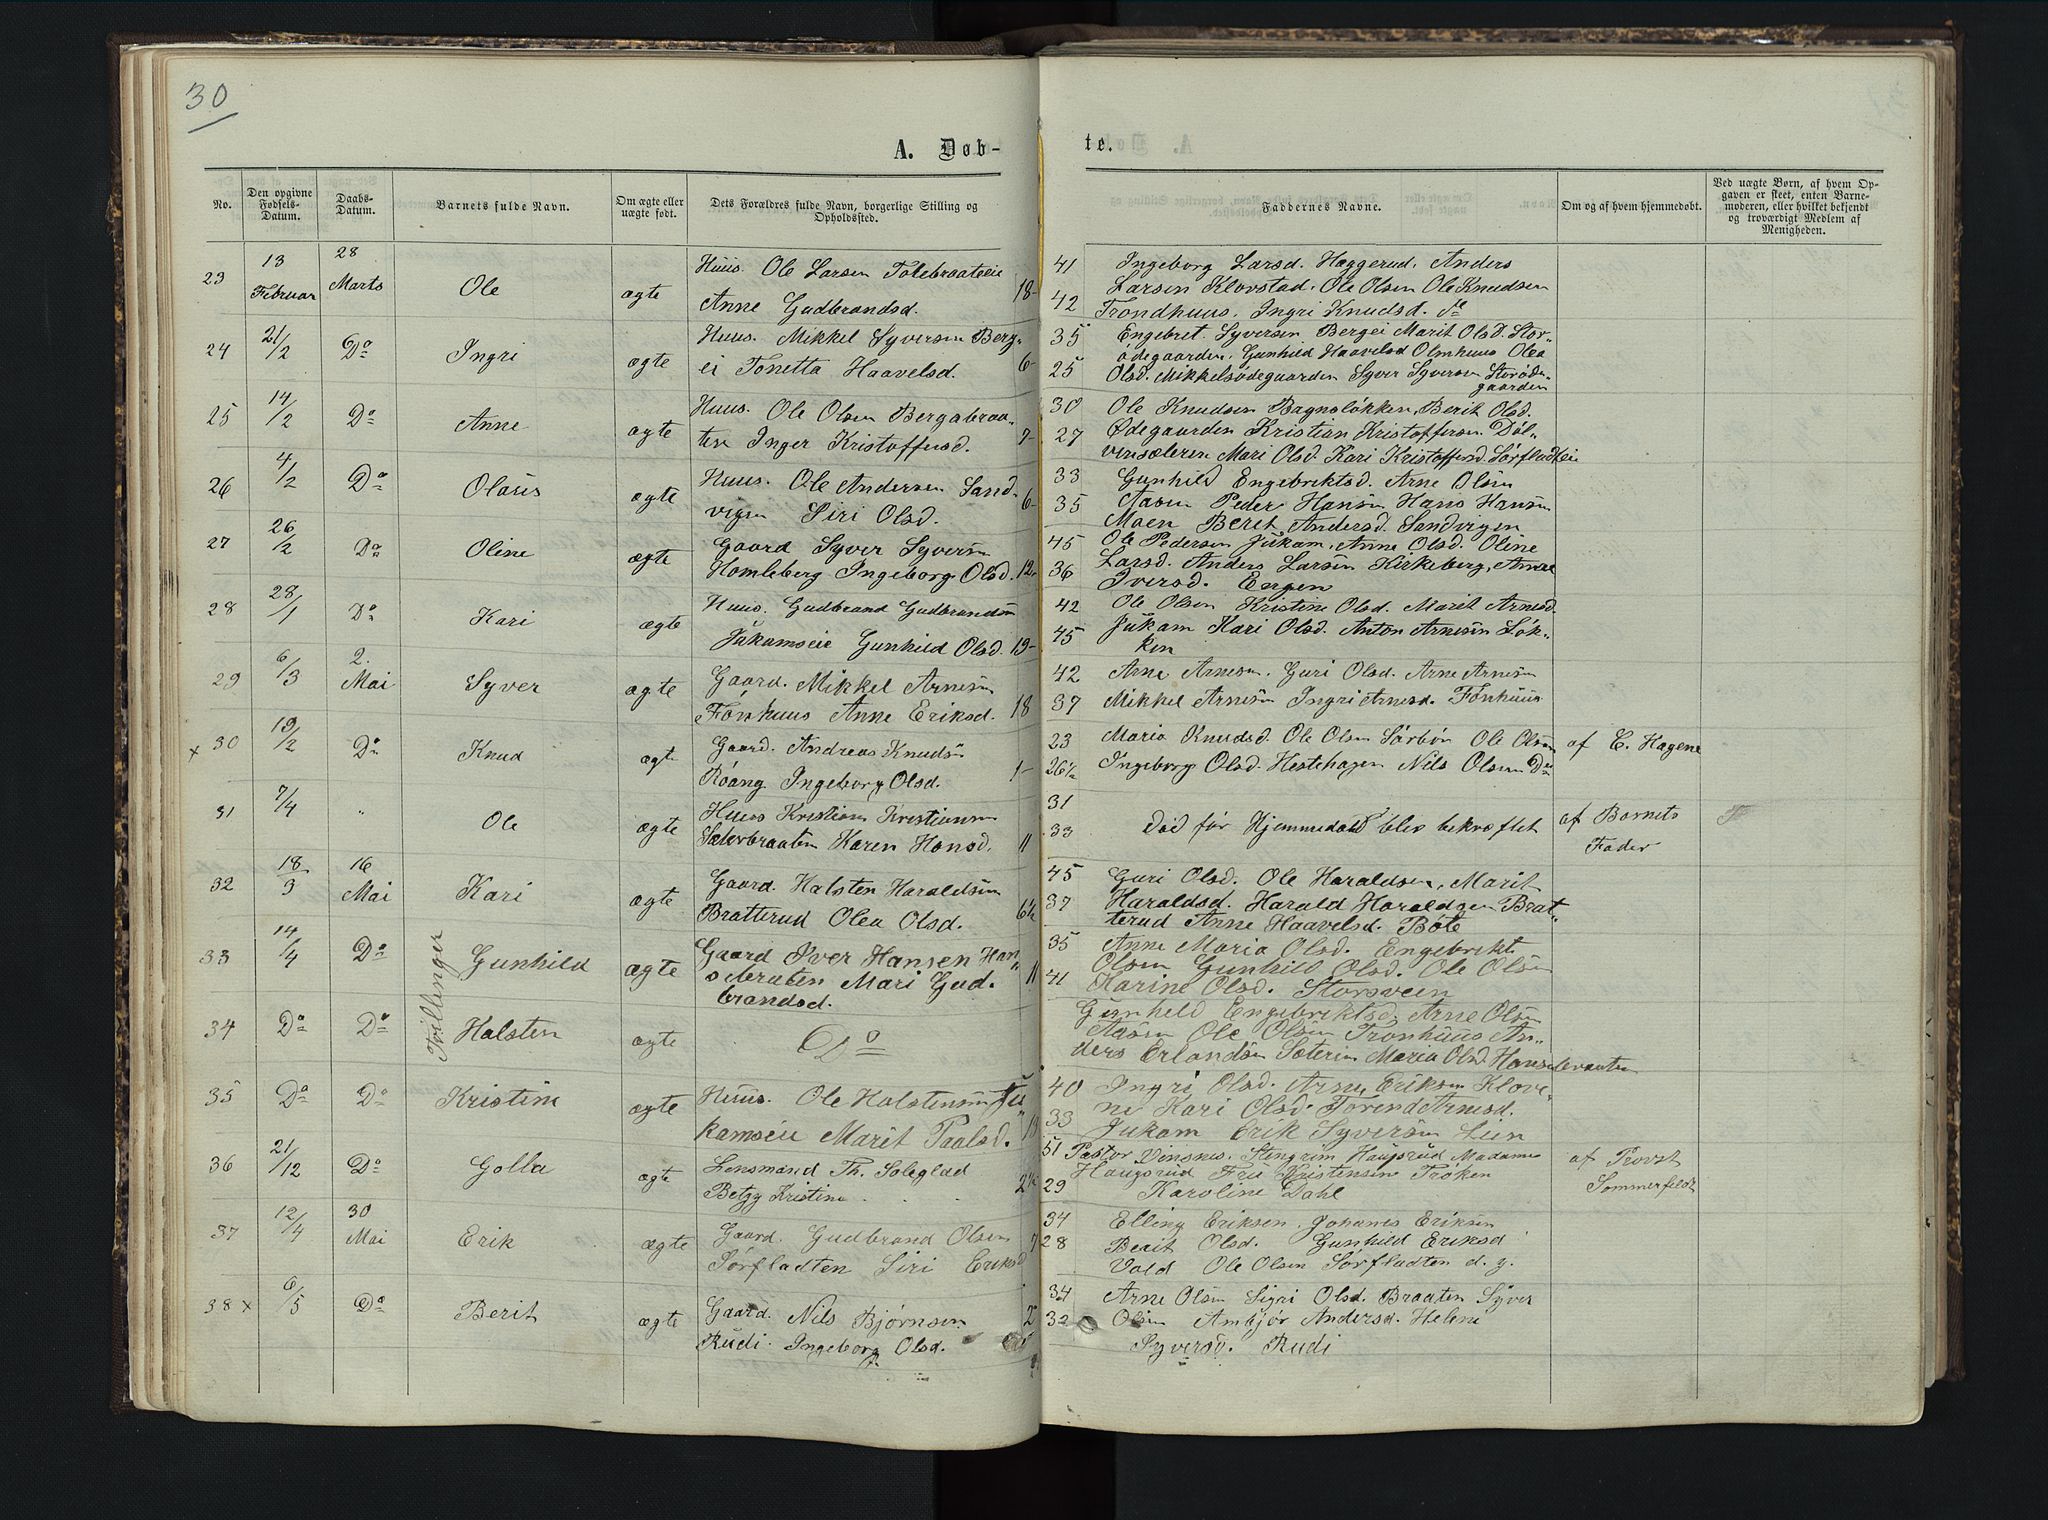 30
A. Døb-
te.
No.
Den opgivne Fødsels-Datum.
Daabs-Datum.
Barnets fulde Navn.
Om ægte eller uægte født.
Dets Forældres fulde Navn, borgerlige Stilling og Opholdssted.
Faddernes Navne.
Om og af hvem hjemmedøbt.
Ved uægte Børn, af hvem Op-
gaven er skeet, enten Barne-
moderen, eller hvilket bekjendt
og troværdigt Medlem af
Menigheden.
23 13 Februar 28 Marts Ole ægte
Huus. Ole Larsen Tolebraateeie
Anne Gudbrandsd. 18-
41 Ingeborg Larsd. Heggerud, Anders
Larsen Klovstad, Ole Olsen Ole Knudsen
42 Trondhuus, Ingri Knudsd. do
24 21/2 Do Ingri ægte
Huus. Mikkel Syversen Berg-
ei Tonetta Haavelsd. 6-
35 Engebret Syversen Bergei Marit Olsd. Stor-
ødegaarden, Gunhild Haavelsd Olmhuus Olea
25 Olsd. Mikkelsødegaarden Syver Syversen Storøde-
gaarden
25 14/2 Do Anne ægte
Huus. Ole Olsen Bergabraa-
ten Inger Kristoffersd. 7-
30 Ole Knudsen Bagnsløkken, Berit Olsd.
27 Ødegaarden Kristian Kristoffersen Døl-
vensæleren Mari Olsd. Kari Kristoffersd. Sørfladteie
26 4/2 Do Olaus ægte
Huus. Ole Andersen Sand-
vigen Siri Olsd. 6-
33 Gunhild Engebriktsd. Arne Olsen
35 Aasen Peder Hansen Hans Hansen
Moen Berit Andersd. Sandvigen
27 26/2 Do Oline ægte
Gaard Syver Syversen
Homleberg Ingeborg Olsd. 12-
45 Ole Pedersen Jukam, Anne Olsd. Oline
36 Larsd. Anders Larsen Kirkeberg, Anne
Iversd. Engen
28 28/1 Do Kari ægte
Huus. Gudbrand Gudbrandsen
Jukamseie Gunhild Olsd. 19-
42 Ole Olsen Kristine Olsd. Marit Arnesd.
45 Jukam Kari Olsd. Anton Arnesen Løk-
ken
29 6/3 2. Mai Syver ægte
Gaard. Mikkel Arnesen
Fønhuus Anne Eriksd. 18
42 Arne Arnesen, Guri Olsd. Arne Arnesen
37 Mikkel Arnesen Ingri Arnesd. Fønhuus
x 30 19/2 Do Knud ægte
Gaard. Andreas Knudsen
Roang Ingeborg Olsd. 1-
23 Maria Knudsd. Ole Olsen Sørbøn Ole Olsen
26½ Ingeborg Olsd. Hestehagen Nils Olsen Do
af C. Hagene
31 7/4 " Ole ægte
Huus Kristian Kristiansen
Sæterbraaten Karen Hansd. 11
31
33 død før Hjemmedaab blev bekræftet
af Barnets
Fader
32 18/3 16 Mai Kari ægte
Gaard. Halsten Haraldsen
Bratterud Olea Olsd. 6½
45 Guri Olsd. Ole Haraldsen, Marit
37 Haraldsd. Harald Haraldsen Brat-
terud Anne Haavelsd. Bøle
33 14/4 Do Tvillinger Gunhild ægte
Gaard Iver Hansen Han-
sebraten Mari Gud-
brandsd. 11
35 Anne Maria Olsd. Engebrikt
Olsen Gunhild Olsd. Ole Olsen
41 Karine Olsd. Storsveen
34 Do Do Halsten ægte
Do
Gunheld Engebriktsd. Arne Olsen
Aasen Ole Olsen Tronhuus An-
ders Erlandsen Sæterin Maria Olsd. Hansebraaten
35 Do Do Kristine ægte
Huus. Ole Halstensen Ju-
kamseie Marit Paalsd. 13
40 Ingri Olsd. Arne Eriksen Klove-
ne Kari Olsd. Torend Arnesd.
33 Jukam Erik Syversen Lien
36 21/12 Do Golla ægte
Lensmand Th. Soleglad
Betzy Kristine 2½
51 Pastor Vinsnes. Stengrim Haugsrud Madame
29 Haugsrud Fru Kristensine Trøken
Karoline Dahl
af Provst
Sommerfeldt
37 12/4 30 Mai Erik ægte
Gaard. Gudbrand Olsen
Sørfladten Siri Eriksd 7
34 Elling Eriksen, Johanes Eriksen
28 Berit Olsd. Gunhild Eriksd
Vold Ole Olsen Sørfladten d. y.
38 x 6/5 Do Berit ægte
Gaard. Nils Bjørnsen
Rudi. Ingeborg Olsd. 2
34 Arne Olsen Sigri Olsd. Braaten Syver
32 Olsen Ambjør Andersd. Helene
Syversd. Rudi